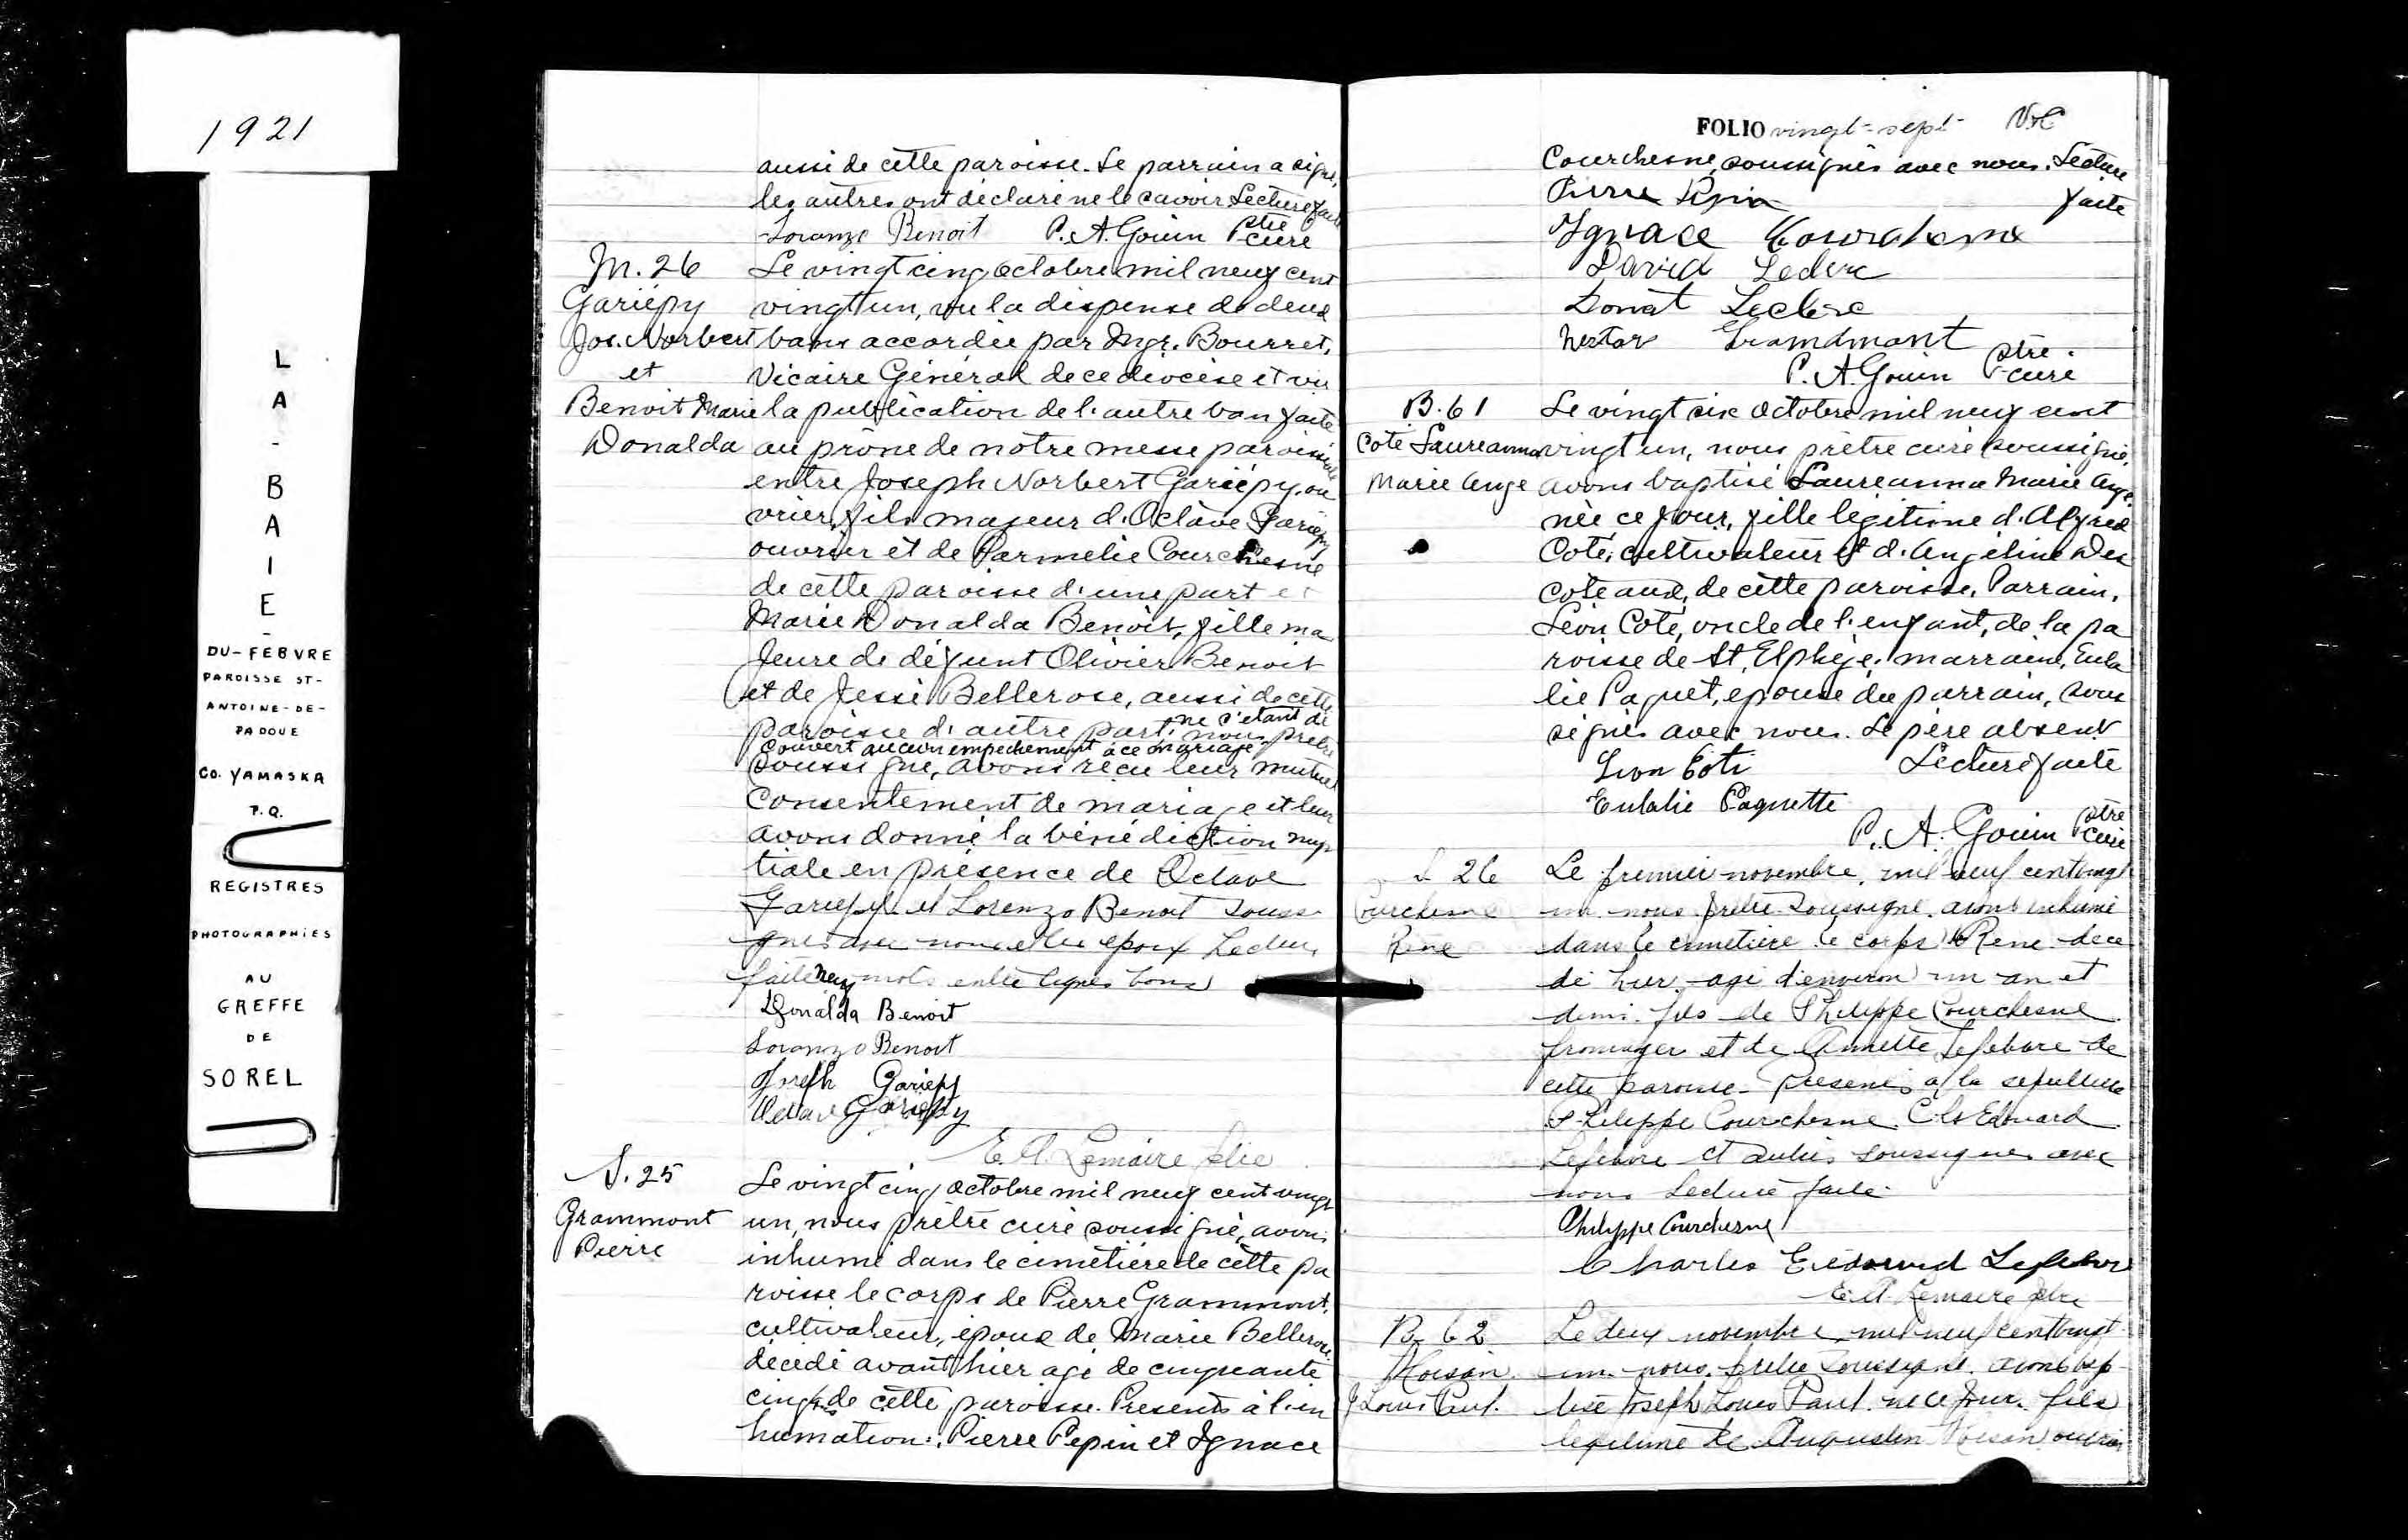 1921
LA-BAIE-
DU-FEBVRE
PAROISSE ST-
ANTOINE-DE-
PADOUE
CO. YAMASKA
P.Q.
REGISTRES
PHOTOGRAPHIES
AU
GREFFE
DE
SOREL
aussi de cette paroisse. Le parrain a signé,
les autres ont déclaré ne le savoir Lecture faite
Loranzo Benoit P. A. Gouin Ptre curé
M. 26
Gariépy
Jos. Norbert
et
Benoit Marie
Donalda
Le vingt cinq octobre mil neuf cent
vingt un, vu la dispense de deux
bans accordée par Mgr. Bourret,
Vicaire Général de ce diocèse et vu
la publication de l'autre ban faite
au prône de notre messe paroissiale
entre Joseph Norbert Gariépy, ou
vrier, fils majeur d'Octave Gariépy
ouvrier et de Parmelie Courchesne
de cette paroisse d'une part et
Marie Donalda Benoit, fille ma
jeure de défunt Olivier Benoit
et de Jessé Bellerose, aussi de cette
paroisse d'autre part, ne s'étant dé
couvert aucun empechement à ce mariage nous prêtre
soussigné, avons reçu leur mutuel
consentement de mariage et leur
avons donné la bénédiction nup
tiale en présence de Octave
Gariepy et Lorenzo Benoit souss
ignés avec nous et les époux Lecture
faite neuf mots entre lignes bons
Donalda Benoit
Loranzo Benoit
Joseph Gariepy
Octave Gariepy
E. A. Lemaire ptre
S. 25
Grammont
Pierre
Le vingt cinq octobre mil neuf cent vingt
un, nous prêtre curé soussigné, avons
inhumé dans le cimetière de cette pa
roisse le corps de Pierre Grammont,
cultivateur, époux de Marie Bellerose,
décédé avant hier agé de cinquante
cinq ans de cette paroisse. Presents à l'in
humation: Pierre Pepin et Ignace
FOLIO vingt-sept
Courchesne, soussignés avec nous. Lecture
faite
Pierre Pepin
Ignace Courchesne
David Leclerc
Donat Leclerc
Nestor Grandmont
P. A. Gouin Ptre curé
B. 61
Coté Laureanna
Marie Ange
Le vingt six octobre mil neuf cent
vingt un, nous prêtre curé soussigné,
avons baptisé Laureanna Marie Ange
née ce jour, fille légitime d'Alfred
Coté, cultivateur et d'Angéline Des
coteaux, de cette paroisse. Parrain,
Léon Coté, oncle de l'enfant, de la pa
roisse de St. Elphège, marraine, Eula
lie Paquet, epouse du parrain, sous
signés avec nous. Le père absent
Lecture faite
Leon Coté
Eulalie Paquette
P. A. Gouin Ptre curé
S 26
Courchesne
René
Le premier novembre, mil neuf cent vingt
un nous prêtre soussigné avons inhumé
dans le cimetière le corps de René décé
dé hier, agé d'environ un an et
demi fils de Philippe Courchesne
fromager et de Annette Lefebvre de
cette paroisse. Presents à la sépulture
Philippe Courchesne Chs Edouard
Lefebvre et autres soussignés avec
nous Lecture faite.
Philippe Courchesne
Charles Edouard Lefebvre
E. A. Lemaire ptre
B. 62
J Louis Paul.
Le deux novembre mil neuf cent vingt
un nous prêtre soussigné avons bap
tisé Joseph Louis Paul né ce jour fils
légitime de Augustin ouvrier